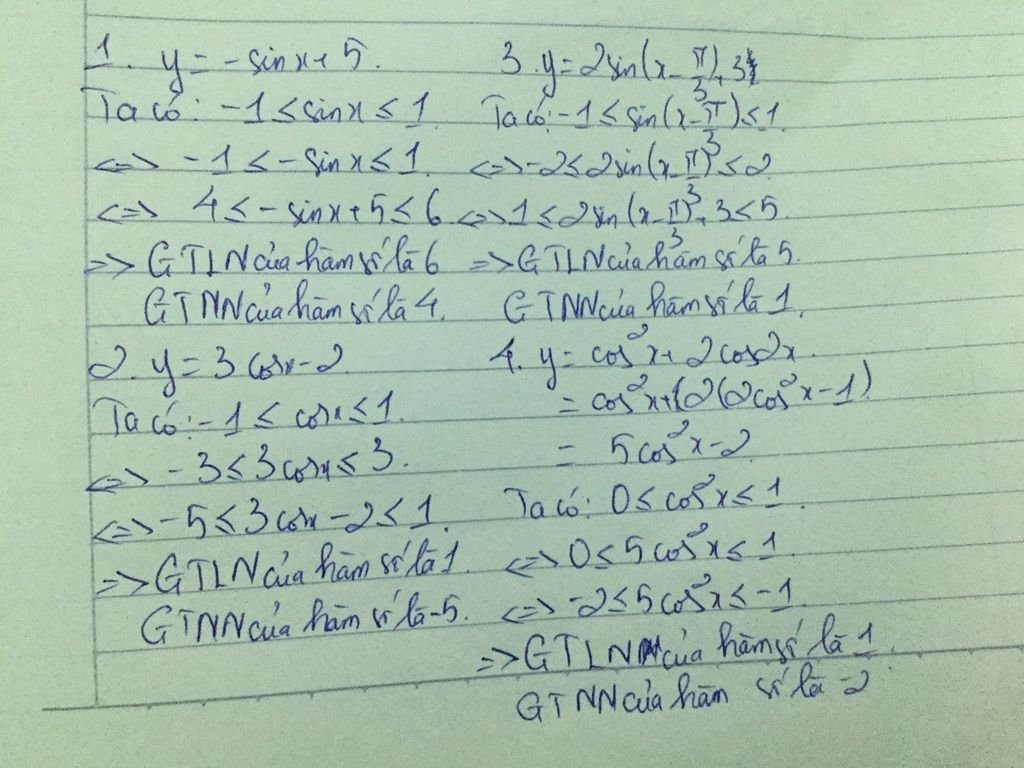 1. y = -sinx + 5.
Ta có: -1 ≤ sinx ≤ 1.
<=> -1 ≤ -sinx ≤ 1.
<=> 4 ≤ -sinx + 5 ≤ 6
=> GTLN của hàm số là 6
GTNN của hàm số là 4.
2. y = 3cosx - 2
Ta có: -1 ≤ cosx ≤ 1.
<=> -3 ≤ 3cosx ≤ 3.
<=> -5 ≤ 3cosx - 2 ≤ 1.
=> GTLN của hàm số là 1
GTNN của hàm số là -5.
3. y = 2sin(x - π/3) + 3
Ta có: -1 ≤ sin(x - π/3) ≤ 1
<=> -2 ≤ 2sin(x - π/3) ≤ 2
<=> 1 ≤ 2sin(x - π/3) + 3 ≤ 5.
=> GTLN của hàm số là 5.
GTNN của hàm số là 1.
4. y = cos²x + 2cos2x.
= cos²x + 2(2cos²x - 1)
= 5cos²x - 2
Ta có: 0 ≤ cos²x ≤ 1.
<=> 0 ≤ 5cos²x ≤ 1.
<=> -2 ≤ 5cos²x ≤ -1.
=> GTLN của hàm số là 1.
GTNN của hàm số là -2